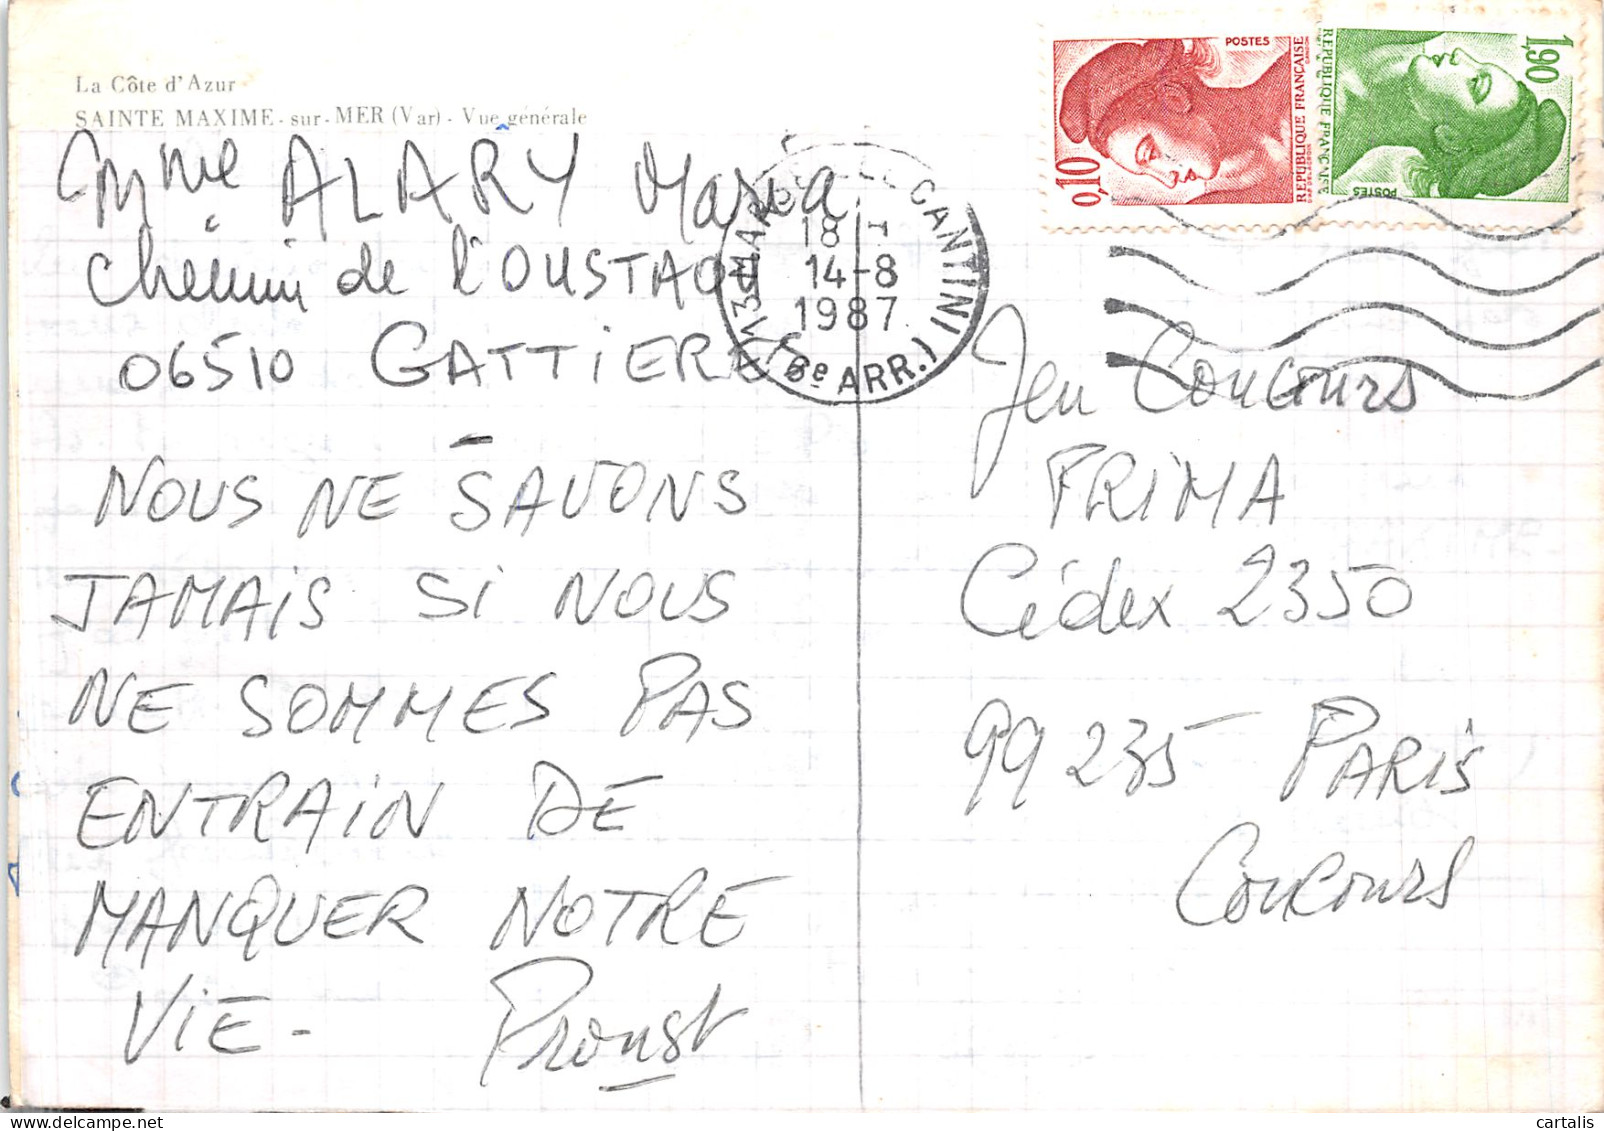 La Côte d'Azur
SAINTE MAXIME - sur - MER (Var) - Vue générale
Mme ALARY Maria
chemin de l'OUSTAOU
06510 GATTIERE
NOUS NE SAVONS
JAMAIS SI NOUS
NE SOMMES PAS
ENTRAIN DE
MANQUER NOTRE
VIE -
Proust
18 H
14-8
1987
CANTINI
(8e ARR.)
POSTES
0,10
REPUBLIQUE FRANÇAISE
1,90
REPUBLIQUE FRANÇAISE
POSTES
Jeu Concours
PRIMA
Cédex 2350
99235 PARIS
Concours
cartalis